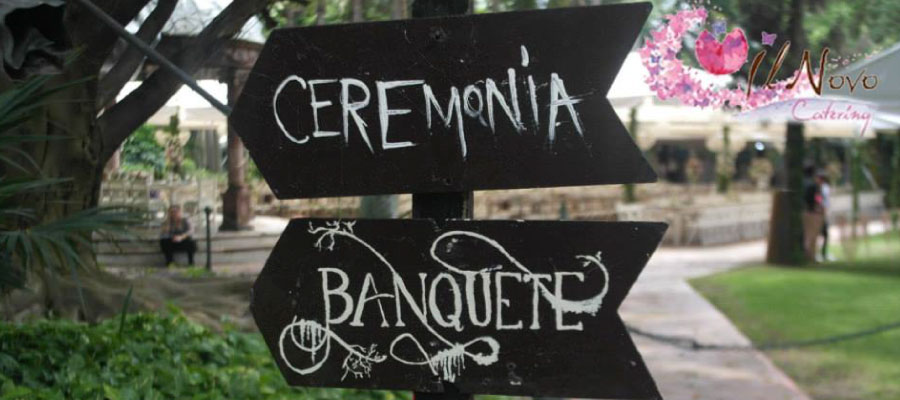 CEREMONIA
BANQUETE
Il Novo
Catering